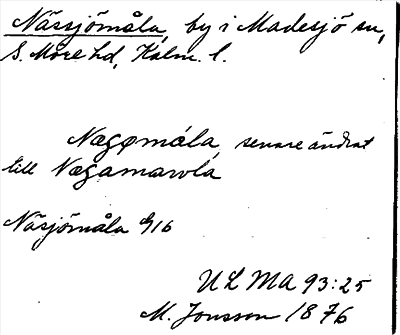 Nässjömåla, by i Madesjö sn,
S. Möre hd, Kalm. l.
Nægømåla, senare ändrat
till Nægamarvla
Näsjömåla G16
ULMA 93:25
M. Jonsson 1876